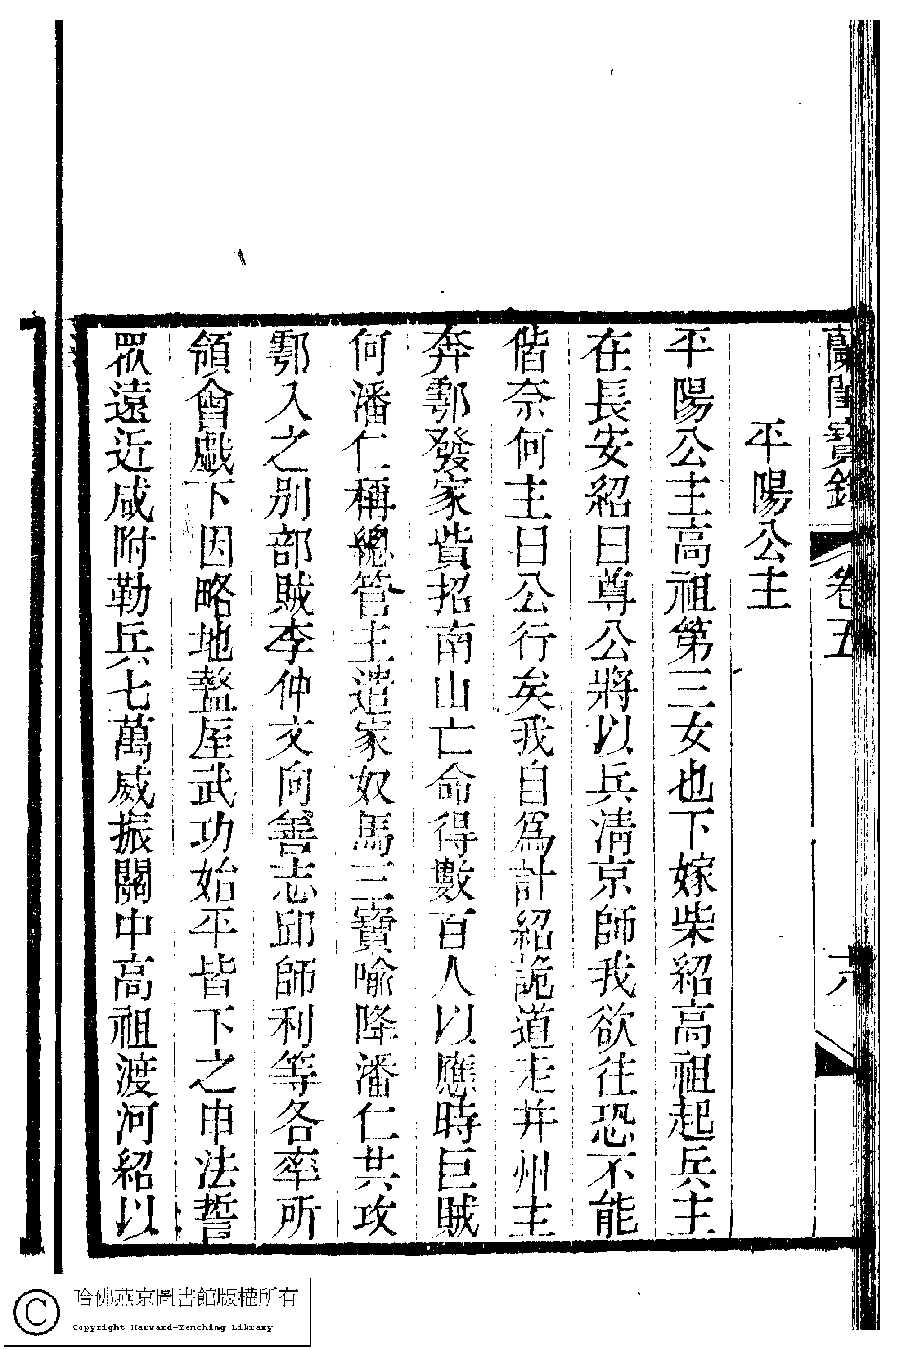 蘭閨寶錄 卷五 六
平陽公主
平陽公主高祖第三女也下嫁柴紹高祖起兵主
在長安紹曰尊公將以兵清京師我欲往恐不能
偕奈何主曰公行矣我自爲計紹詭道走并州主
奔鄠發家貲招南山亡命得數百人以應時巨賊
何潘仁稱總管主遣家奴馬三寶喻降潘仁共攻
鄠入之别部賊李仲文向善志邱師利等各率所
領會戲下因略地盩厔武功始平皆下之申法誓
眾遠近咸附勒兵七萬威振關中高祖渡河紹以
哈佛燕京圖書館版權所有
Copyright Harvard-Yenching Library